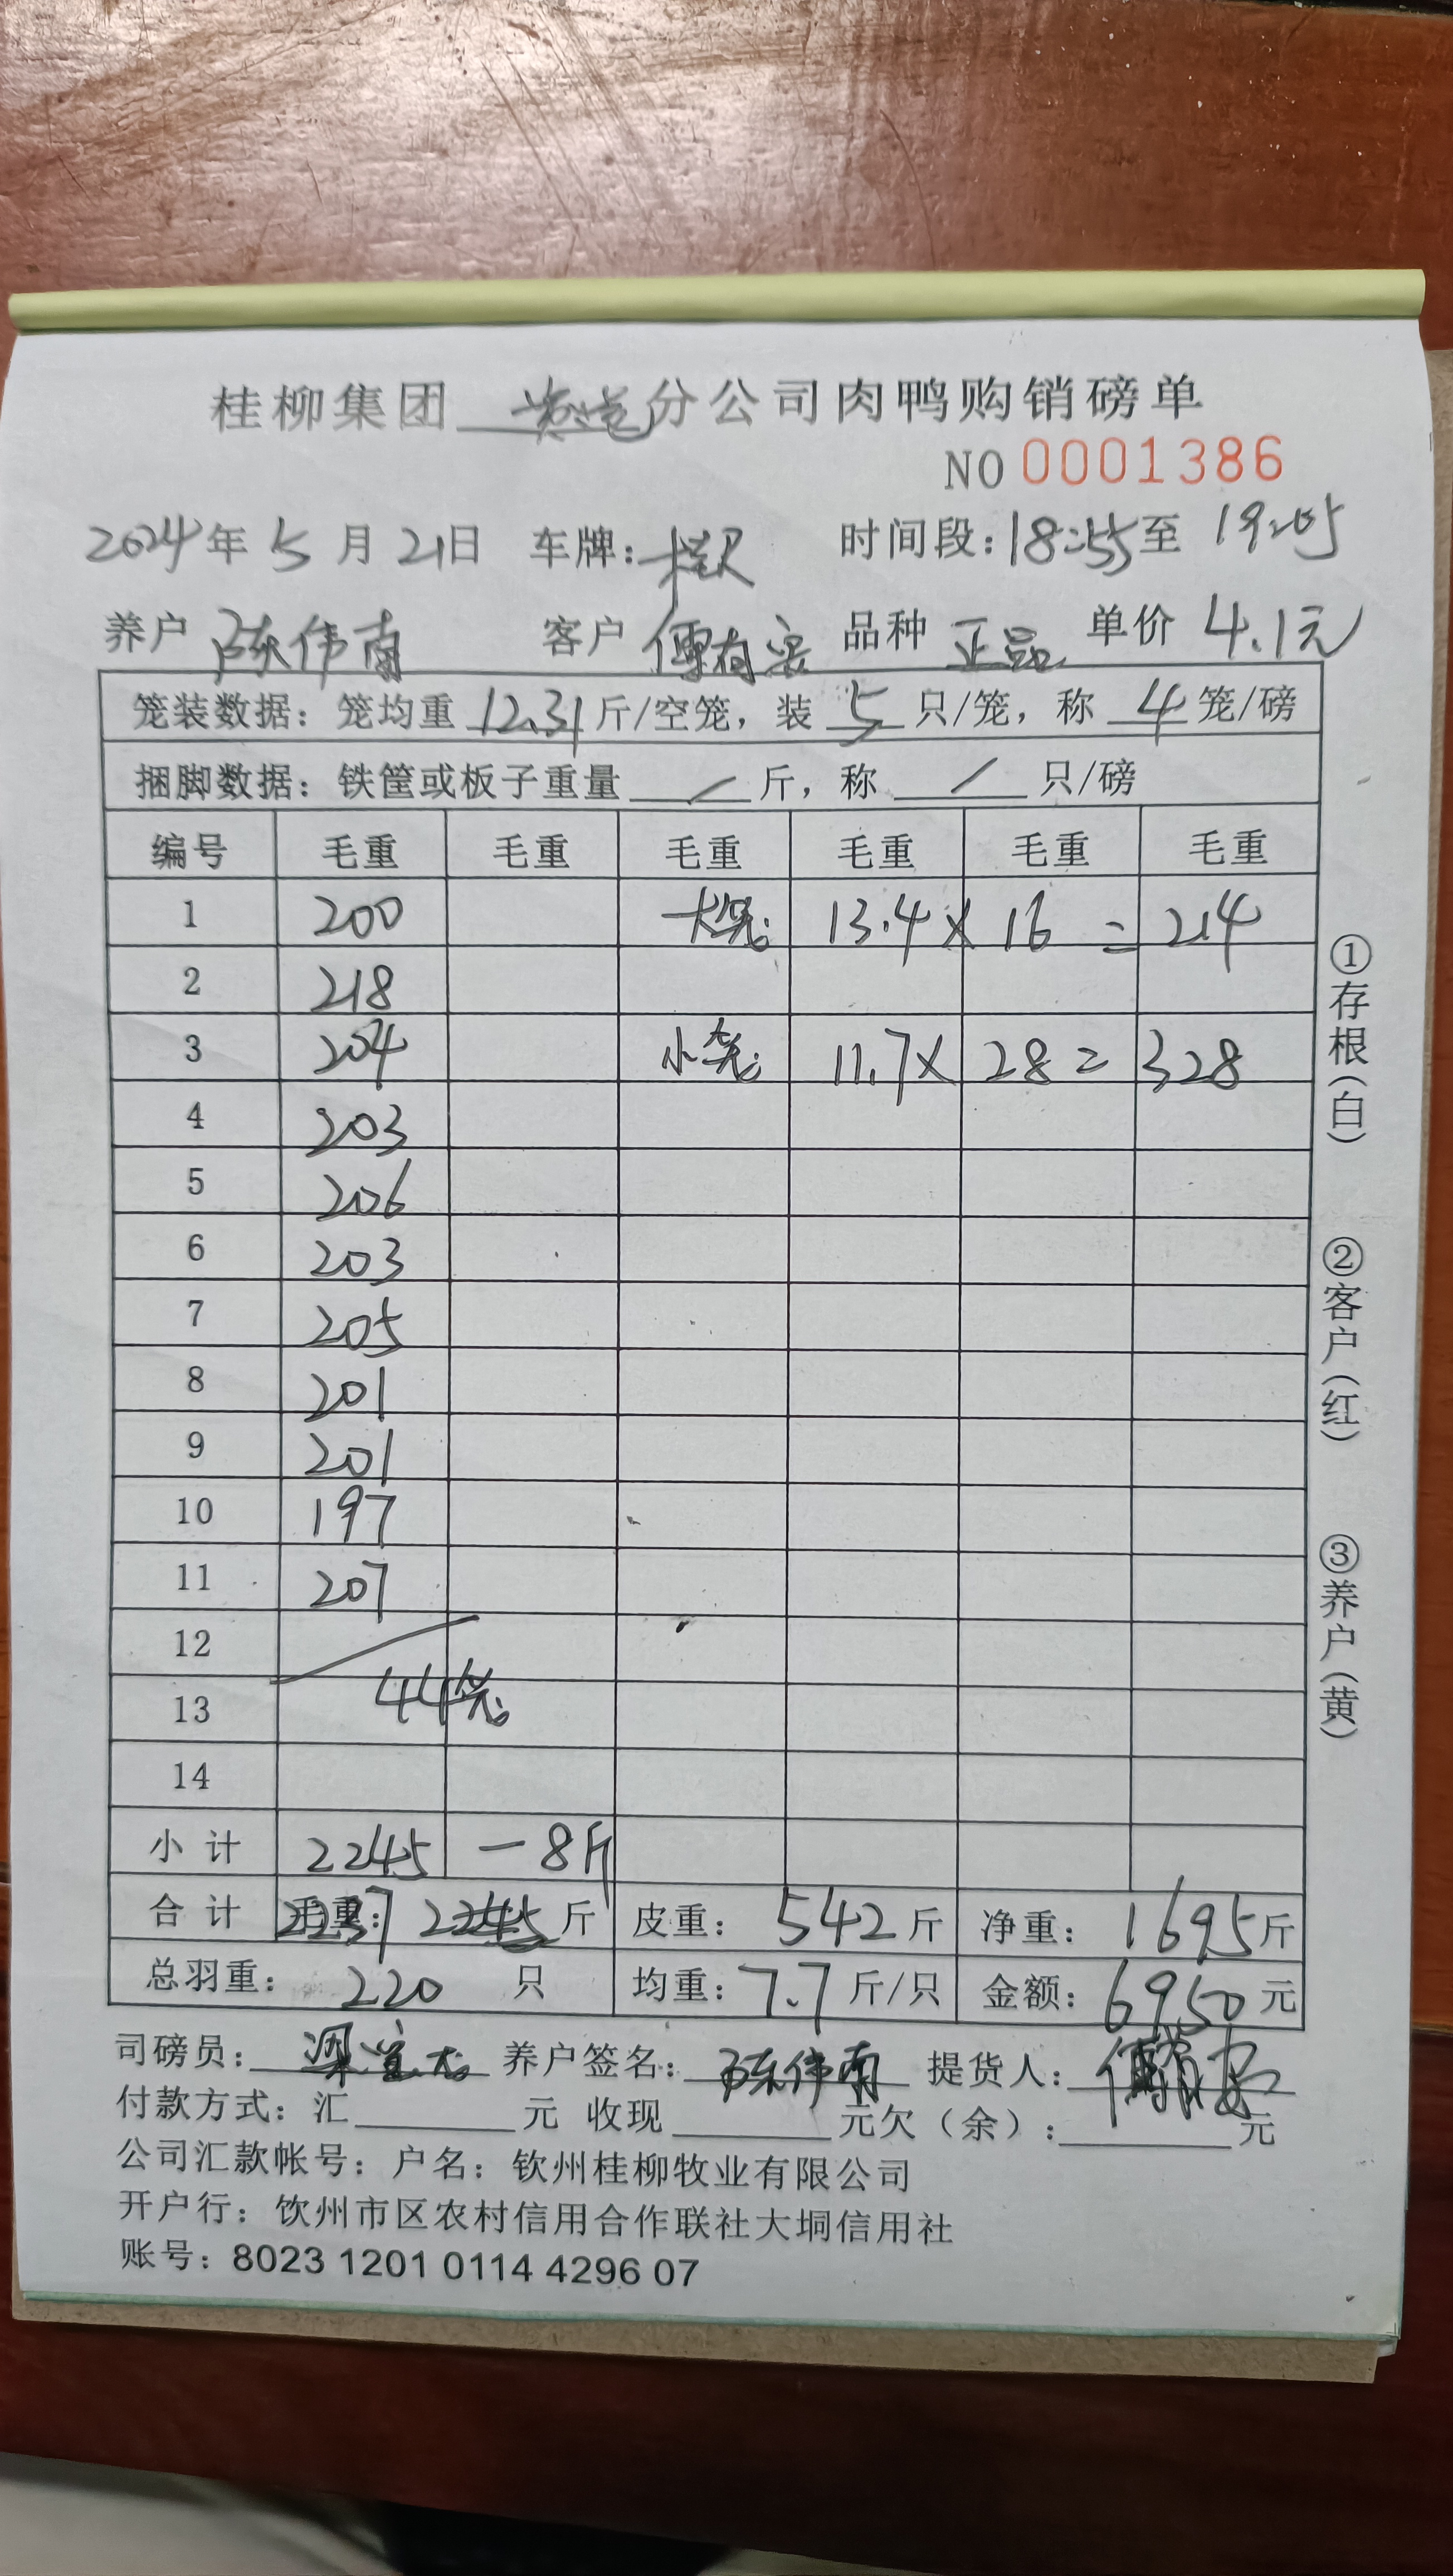 桂柳集团 分公司肉鸭购销磅单
NO 0001386
2024年 5月 21日 车牌: 时间段:18:55至 19:05
养户 陈伟南 客户 品种 正品 单价 4.1元
笼装数据：笼均重 12.31 斤/空笼，装 5 只/笼，称 4 笼/磅
捆脚数据：铁筐或板子重量 / 斤，称 / 只/磅
编号 毛重 毛重 毛重 毛重 毛重 毛重
1 200 大笼: 13.4 × 16 = 214
2 218
3 204 小笼: 11.7 × 28 = 328
4 203
5 206
6 203
7 205
8 201
9 201
10 197
11 207
12
13 44笼
14
小计 2245 -8斤
合计 毛重: 2237 2245 斤 皮重: 542 斤 净重: 1695 斤
总羽重: 220 只 均重: 7.7 斤/只 金额: 6950 元
司磅员: 养户签名: 陈伟南 提货人:
付款方式: 汇 元 收现 元欠（余）: 元
公司汇款帐号: 户名: 钦州桂柳牧业有限公司
开户行: 饮州市区农村信用合作联社大垌信用社
账号: 8023 1201 0114 4296 07
①存根(白)
②客户(红)
③养户(黄)